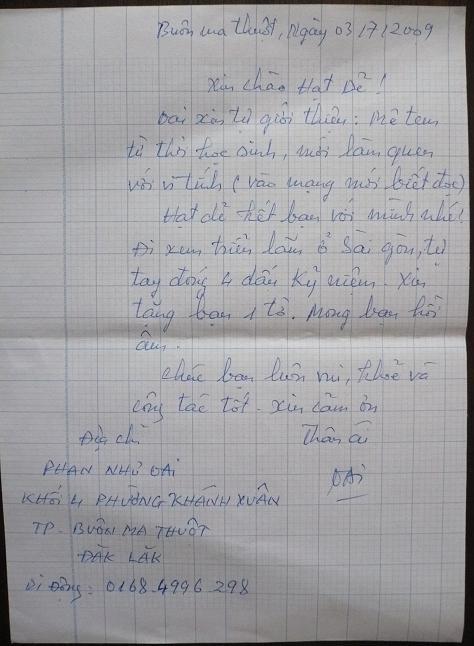 Buôn ma thuột, Ngày 03/7/2009
Xin chào Hạt Dẻ!
Đại xin tự giới thiệu: Mê tem
từ thời học sinh, mới làm quen
với vi tính (vào mạng mới biết đọc)
Hạt dẻ kết bạn với mình nhé!
Đi xem triển lãm ở Sài gòn, tự
tay đóng 4 dấu kỷ niệm. Xin
tặng bạn 1 tờ. Mong bạn hồi
âm.
chúc bạn luôn vui, khoẻ và
công tác tốt. Xin cảm ơn
Địa chỉ Thân ái
PHAN NHƯ ĐẠI ĐẠI
KHỐI 4 PHƯỜNG KHÁNH XUÂN
TP. BUÔN MA THUỘT
ĐĂK LĂK
Di Động: 0168.4996.298